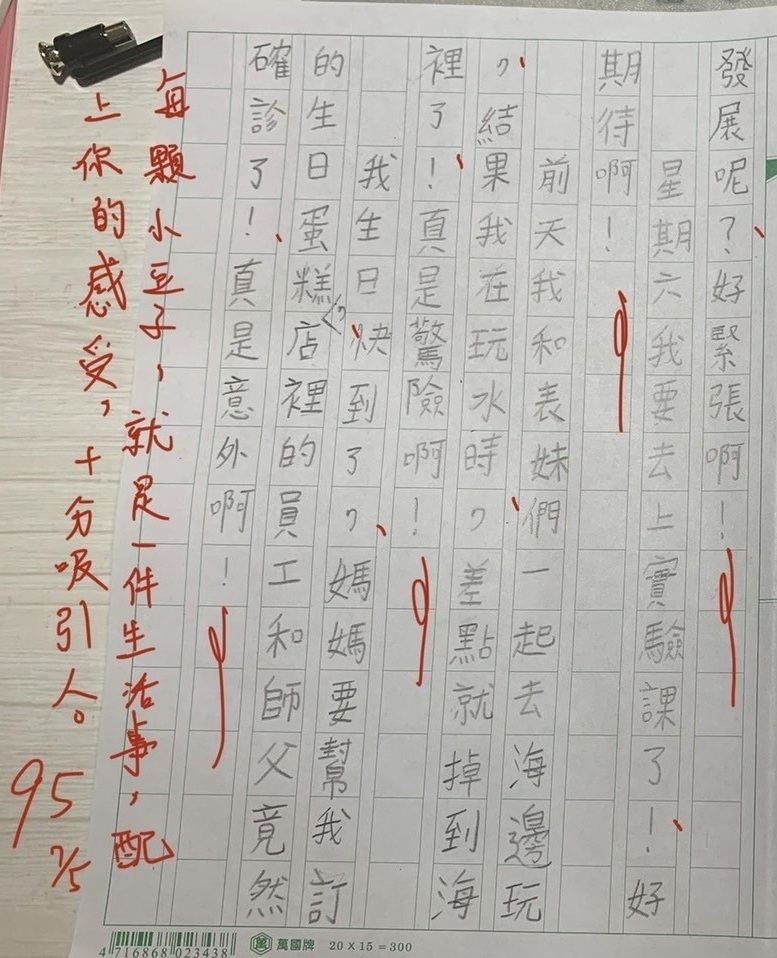 發展呢？好緊張啊！
星期六我要去上實驗課了！好
期待啊！
前天我和表妹們一起去海邊玩
，結果我在玩水時，差點就掉到海
裡了！真是驚險啊！
我生日快到了，媽媽要幫我訂
的生日蛋糕店裡的員工和師父竟然
ㄍㄠ
確診了！真是意外啊！
每顆小豆子，就是一件生活事，配
上你的感受，十分吸引人。
95
7/5
4 716868 023438
萬 萬國牌 20 X 15 = 300